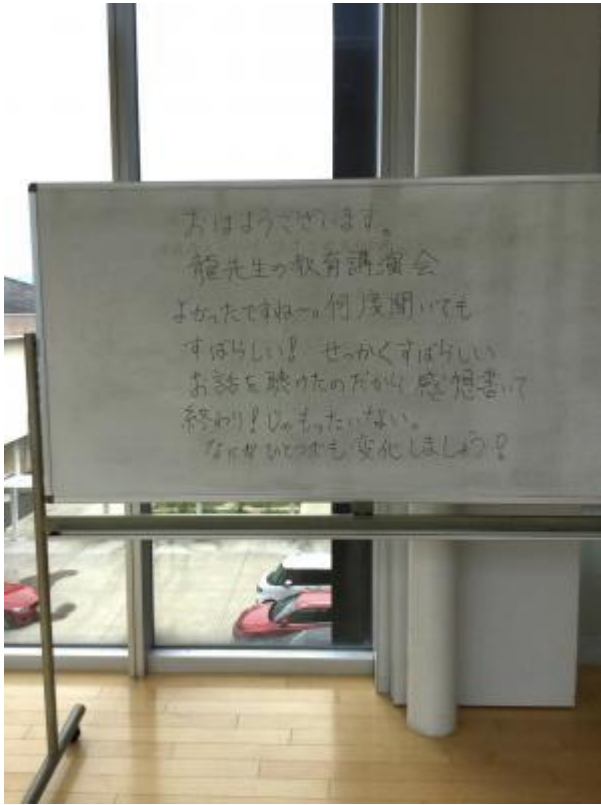 おはようございます。
龍先生の教育講演会
よかったですね〜。何度聞いても
すばらしい！せっかくすばらしい
お話を聴けたのだから感想書いて
終わり！じゃもったいない。
なにかひとつでも変化しましょう！